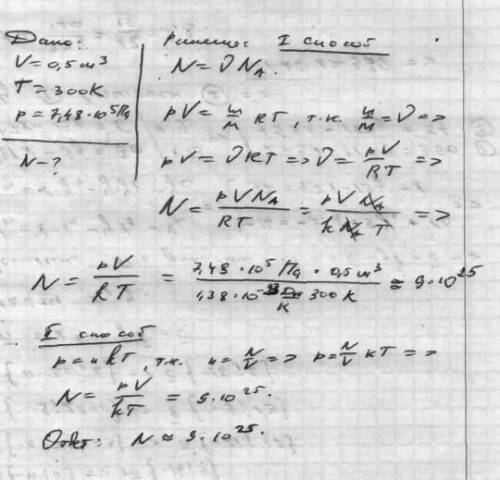 Дано:
V = 0,5 м³
T = 300 K
p = 7,48 · 10⁵ Па
N - ?
Решение: I способ
N = ν N_A.
pV = m/M RT, т.к. m/M = ν =>
pV = νRT => ν = pV/RT =>
N = pVN_A/RT = pVN_A/kN_AT =>
N = pV/kT = 7,48 · 10⁵ Па · 0,5 м³ / 1,38 · 10⁻²³ Дж/К 300 K ≈ 9 · 10²⁵
II способ
p = nkT, т.к. n = N/V => p = N/V kT =>
N = pV/kT = 9 · 10²⁵.
Ответ: N ≈ 9 · 10²⁵.